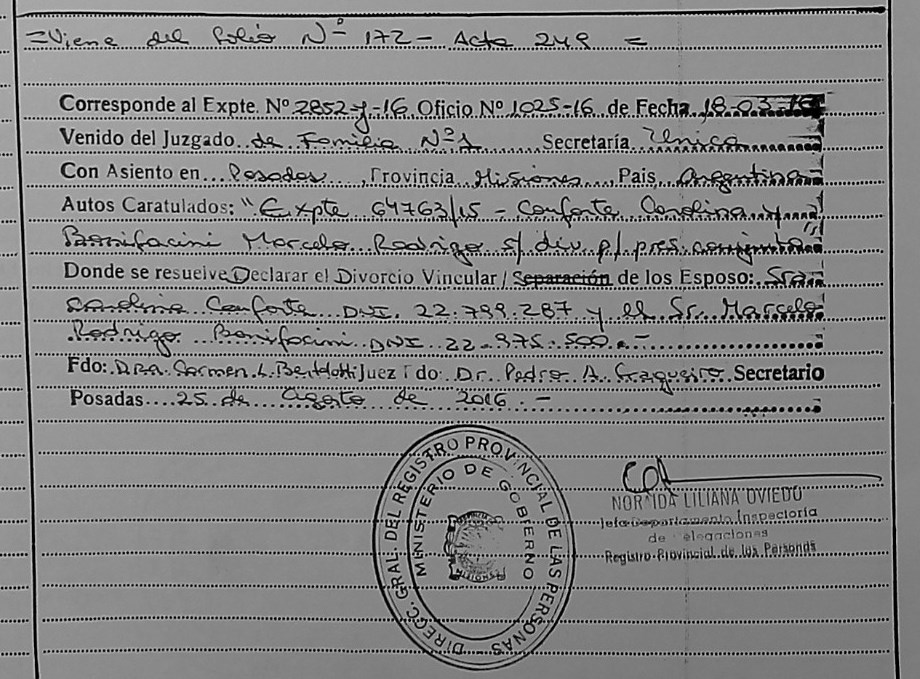 =Viene del folio Nº 172 - Acta 249 =
Corresponde al Expte. Nº 2852-y-16 Oficio Nº 1025-16 de Fecha 18-03-16
Venido del Juzgado de Familia Nº 1 Secretaría Unica
Con Asiento en Posadas, Provincia Misiones, Pais Argentina
Autos Caratulados: "Expte 64763/15 - Conforte Carolina y
Bonifacini Marcelo Rodrigo s/ div. p/ pres. conjunta"
Donde se resuelve Declarar el Divorcio Vincular / Separación de los Esposo: Sra.
Carolina Conforte DNI. 22.799.287 y el Sr. Marcelo
Rodrigo Bonifacini DNI 22.975.500.-
Fdo: Dra. Carmen L. Bertolotti Juez Fdo: Dr. Pedro A. Secretario
Posadas 25 de Agosto de 2016.-
DIRECC. GRAL. DEL REGISTRO PROVINCIAL DE LAS PERSONAS
MINISTERIO DE GOBIERNO
MISIONES
LILIANA OVIEDO
Jefa Departamento Inspectoria
de elegaciones
Registro Provincial de las Personas